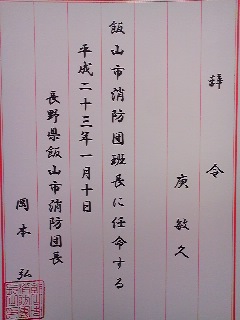 辞令
庚敏久
飯山市消防団班長に任命する
平成二十三年一月十日
長野県飯山市消防団長
岡本弘